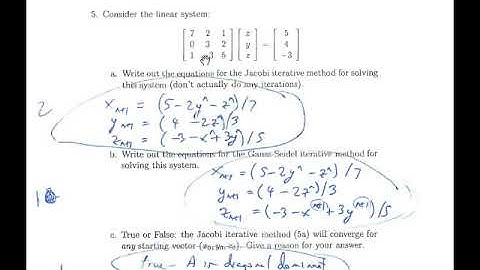 5. Consider the linear system:
7 2 1 x 5
0 3 2 y = 4
1 -3 5 z -3
a. Write out the equations for the Jacobi iterative method for solving
this system (don't actually do any iterations).
2
x_{n+1} = (5 - 2y^n - z^n)/7
y_{n+1} = (4 - 2z^n)/3
z_{n+1} = (-3 - x^n + 3y^n)/5
b. Write out the equations for the Gauss-Seidel iterative method for
solving this system.
x_{n+1} = (5 - 2y^n - z^n)/7
y_{n+1} = (4 - 2z^n)/3
z_{n+1} = (-3 - x^{n+1} + 3y^{n+1})/5
c. True or False: the Jacobi iterative method (5a) will converge for
any starting vector (x₀, y₀, z₀). Give a reason for your answer.
true - A is diagonal dominant